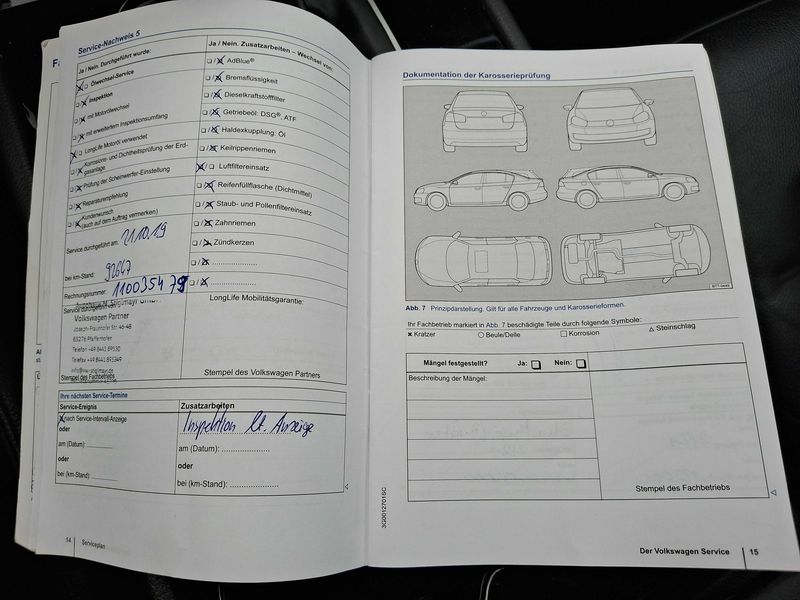 Service-Nachweis 5
Ja / Nein. Durchgeführt wurde:
Ölwechsel-Service
Inspektion
mit Motorölwechsel
mit erweitertem Inspektionsumfang
LongLife Motoröl verwendet
Korrosions- und Dichtheitsprüfung der Erd-
gasanlage
Prüfung der Scheinwerfer-Einstellung
Reparaturempfehlung
Kundenwunsch
(auch auf dem Auftrag vermerken)
Service durchgeführt am: 21.10.19
bei km-Stand: 92647
Rechnungsnummer: 110035479
Service durchgeführt von:
Volkswagen Partner
Joseph-Fraunhofer Str. 46-48
85276 Pfaffenhofen
Telefon +49 8441 89530
Telefax +49 8441 895349
Stempel des Fachbetriebs
Ja / Nein. Zusatzarbeiten – Wechsel von:
AdBlue®
Bremsflüssigkeit
Dieselkraftstofffilter
Getriebeöl: DSG®, ATF
Haldexkupplung: Öl
Keilrippenriemen
Luftfiltereinsatz
Reifenfüllflasche (Dichtmittel)
Staub- und Pollenfiltereinsatz
Zahnriemen
Zündkerzen
LongLife Mobilitätsgarantie:
Stempel des Volkswagen Partners
Ihre nächsten Service-Termine
Service-Ereignis
nach Service-Intervall-Anzeige
oder
am (Datum):
oder
bei (km-Stand):
Zusatzarbeiten
Inspektion lt. Anzeige
am (Datum):
oder
bei (km-Stand):
14 Serviceplan
Dokumentation der Karosserieprüfung
Abb. 7 Prinzipdarstellung. Gilt für alle Fahrzeuge und Karosserieformen.
Ihr Fachbetrieb markiert in Abb. 7 beschädigte Teile durch folgende Symbole:
× Kratzer ○ Beule/Delle □ Korrosion △ Steinschlag
Mängel festgestellt? Ja: Nein:
Beschreibung der Mängel:
Stempel des Fachbetriebs
3G0012701SC
Der Volkswagen Service 15